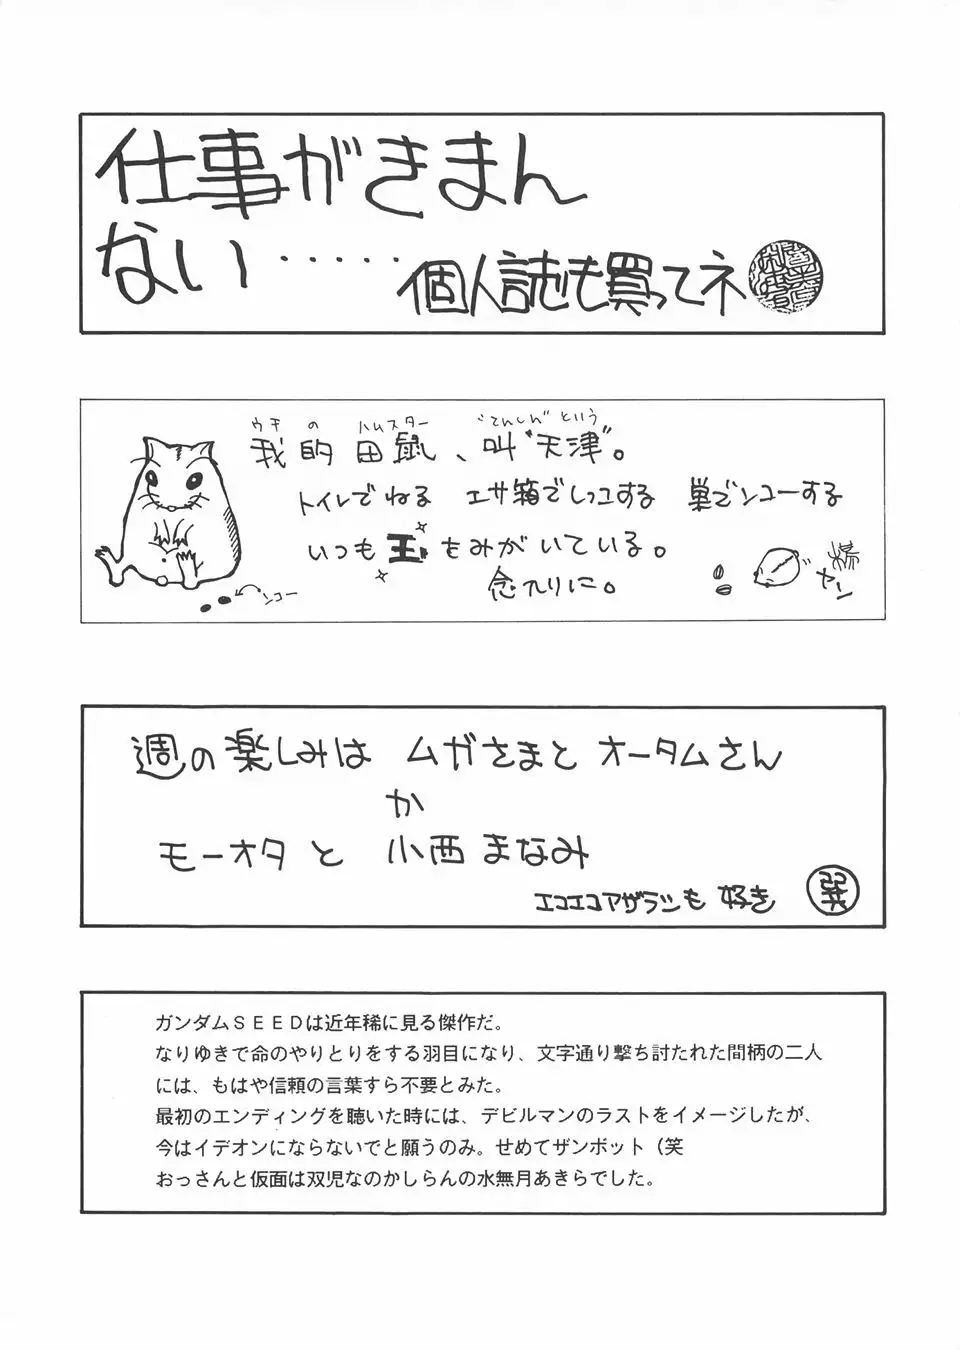 仕事がきまん
ない・・・・・個人誌も買ってネ
ウチ の ハムスター “てんしん”という
我的田鼠、叫“天津”。
トイレでねる エサ箱でしっコする 巣でンコーする
いつも玉をみがいている。
念入りに。
ンコー
ヤーン
週の楽しみは ムガさまと オータムさん
か
モーオタ と 小西 まなみ
エコエコアザラシも 好き
巽
ガンダムＳＥＥＤは近年稀に見る傑作だ。
なりゆきで命のやりとりをする羽目になり、文字通り撃ち討たれた間柄の二人
には、もはや信頼の言葉すら不要とみた。
最初のエンディングを聴いた時には、デビルマンのラストをイメージしたが、
今はイデオンにならないでと願うのみ。せめてザンボット（笑
おっさんと仮面は双児なのかしらんの水無月あきらでした。